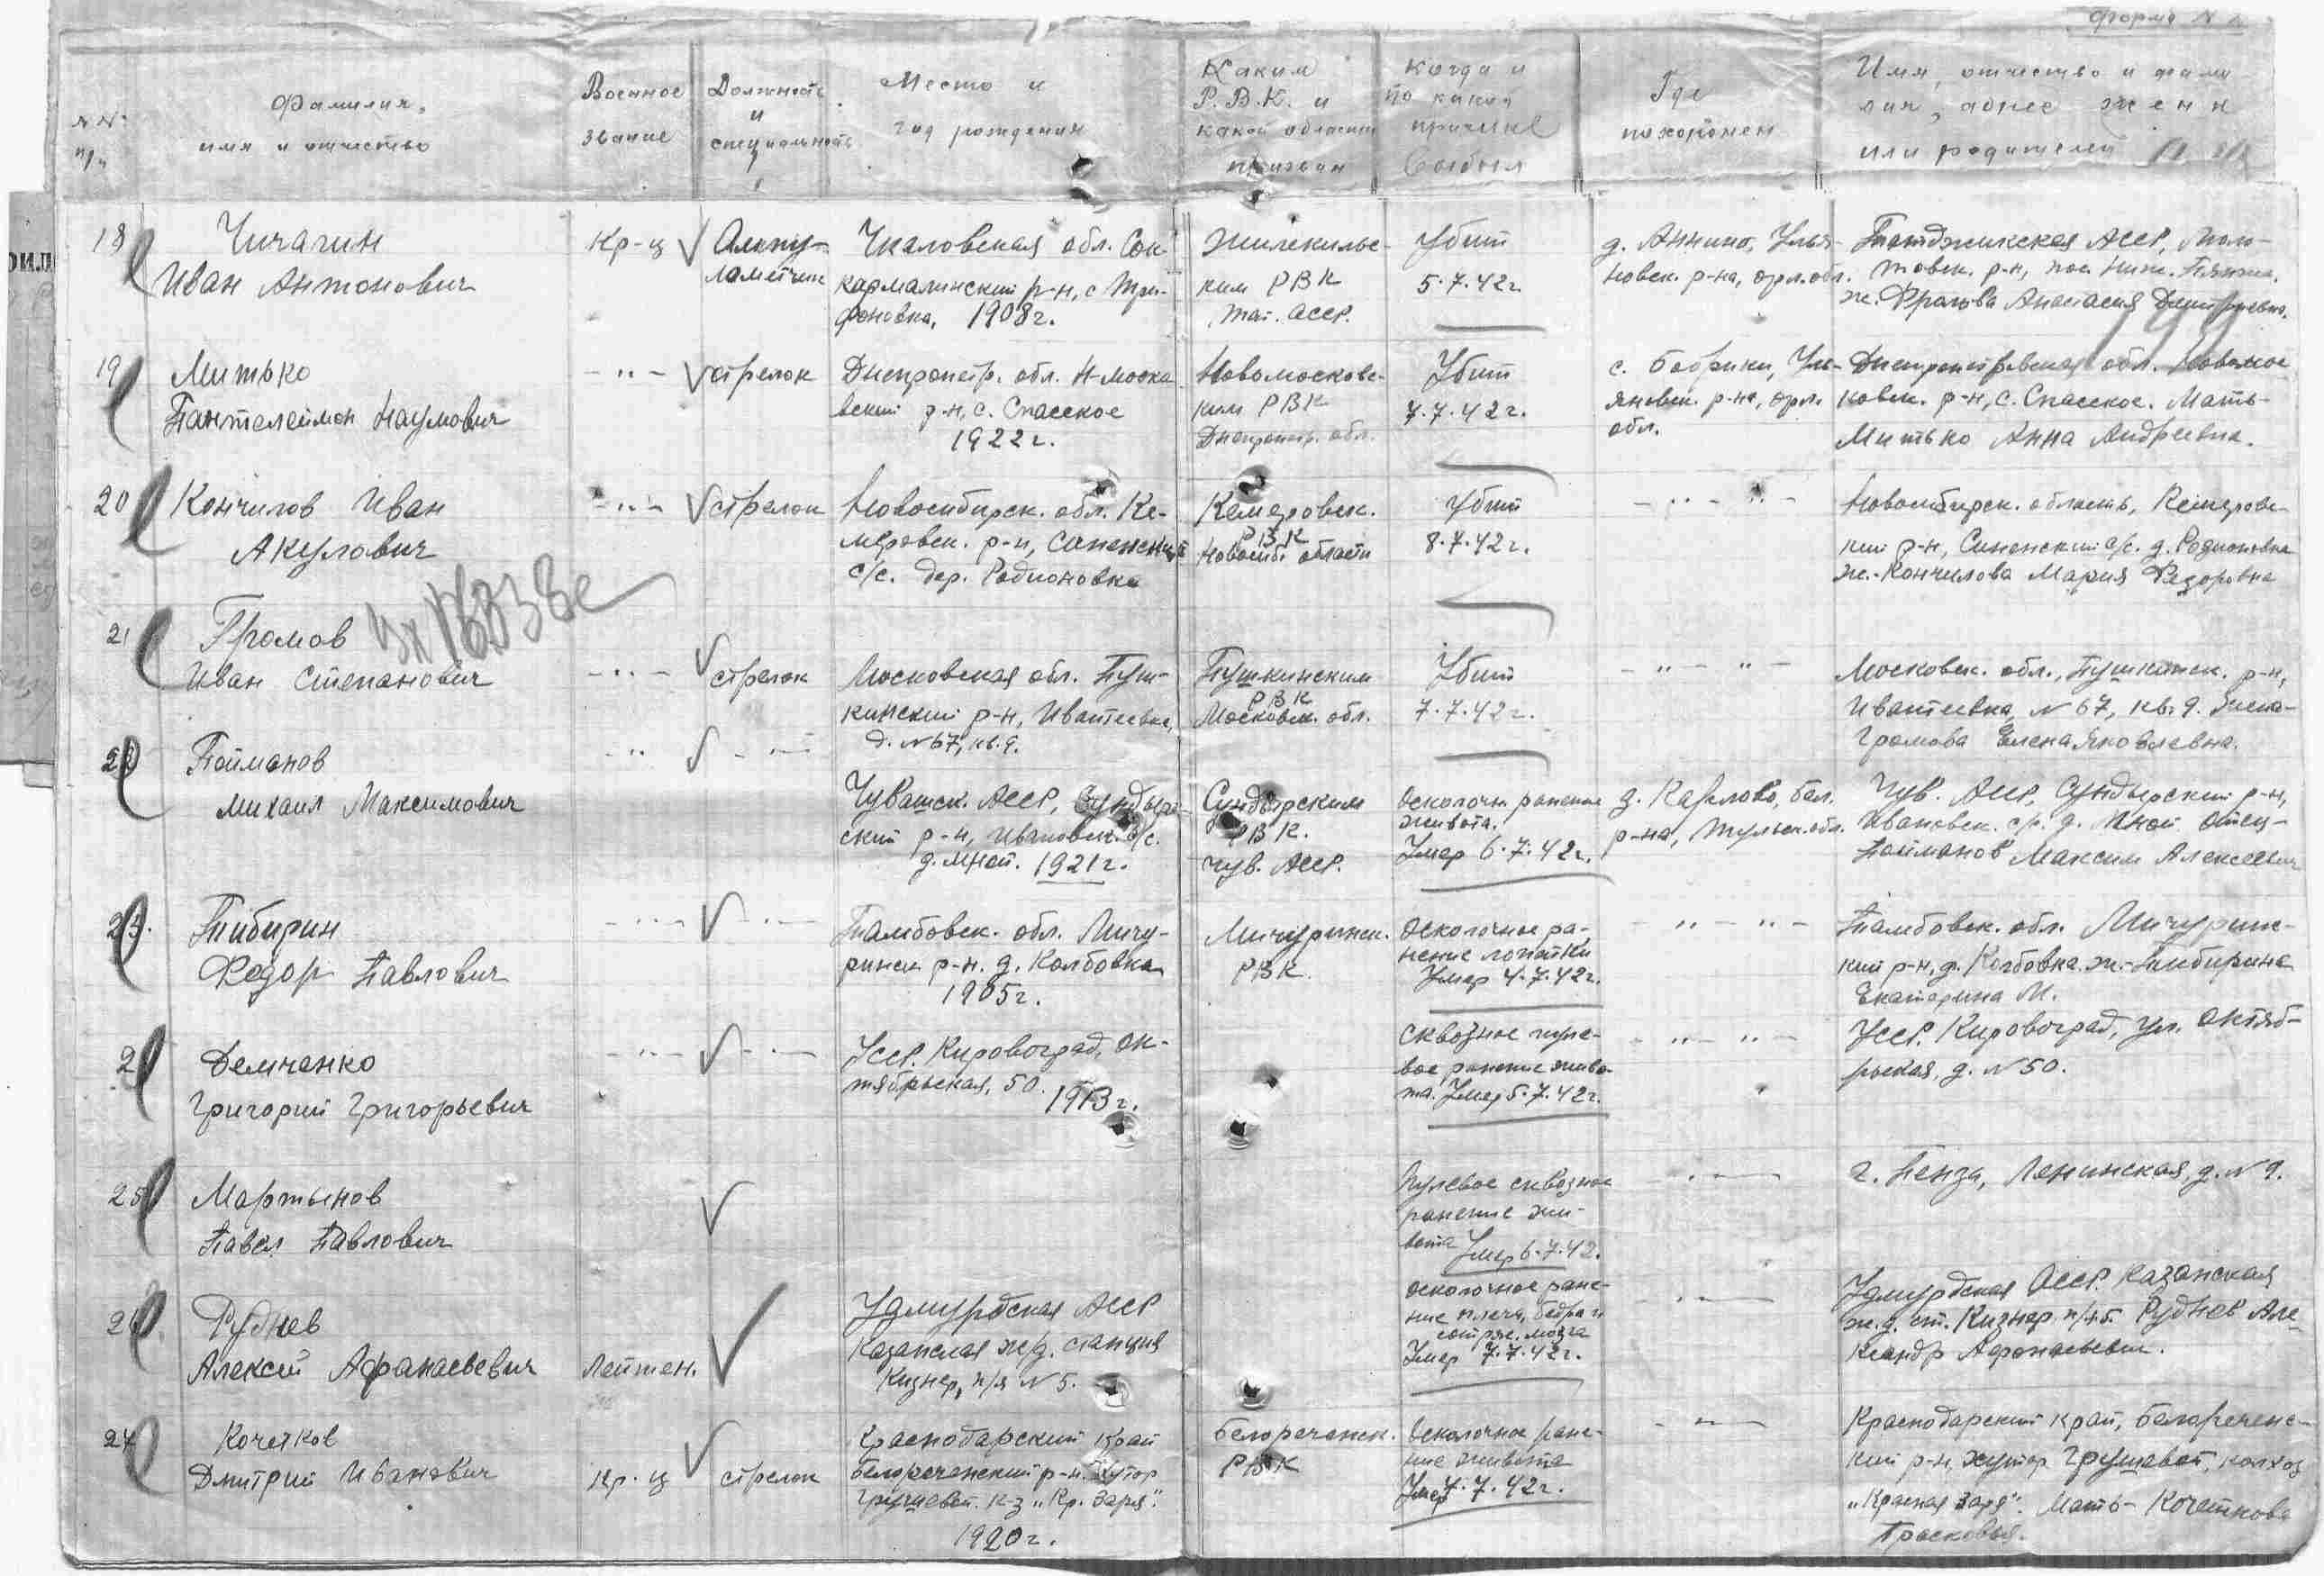 Форма №
№№ п/п
Фамилия, имя и отчество
Военное звание
Должность и специальность
Место и год рождения
Каким Р.В.К. и какой области призван
Когда и по какой причине выбыл
Где похоронен
Имя, отчество и фамилия, адрес жены или родителей
18
Чичагин
Иван Антонович
Кр-ц
Чкаловская обл. Сок-
кармалинский р-н, с Три-
фоновка, 1908г.
ким РВК
АССР.
Убит
5.7.42г.
д. Аннино, Улья-
новск. р-на, орл. обл.
АССР, Моло-
товск. р-н, пос. Ниж.
ж. Анастасия
19
Митько
Пантелеймон Наумович
- " -
стрелок
Днепропетр. обл. Н-моско
вский р-н, с. Спасское
1922г.
Новомосковс-
ким РВК
Днепропетр. обл.
Убит
7.7.42г.
с. Бобрики, Уль-
яновск. р-на, орл.
обл.
Днепропетровская обл. Новомос
ковск. р-н, с. Спасское. Мать-
Митько Анна Андреевна.
20
Кончилов Иван
Акулович
- " -
стрелок
Новосибирск. обл. Ке-
меровск. р-н,
с/с. дер. Родионовка
Кемеровск.
РВК
Новосиб. области
Убит
8.7.42г.
- " - " -
Новосибирск. область, Кемеровс-
кий р-н, с/с. д. Родионовка
ж.-Кончилова Мария Федоровна
21
Громов
Иван Степанович
- " -
стрелок
Московская обл. Пуш-
кинский р-н, Ивантеевка,
д. №67, кв. 9.
Пушкинским
РВК
Московск. обл.
Убит
7.7.42г.
- " - " -
Московск. обл., Пушкинск. р-н,
Ивантеевка, №67, кв. 9. Жена-
Громова Елена Яковлевна.
22
Пойманов
Михаил Максимович
- " -
- " -
Чувашск. АССР, Сундыр-
ский р-н, Ивановск. с/с.
1921г.
Сундырским
РВК.
Чув. АССР.
Осколочн. ранение
живота.
Умер 6.7.42г.
Карлово, бел.
р-на, Тульск. обл.
Чув. АССР, Сундырский р-н,
Ивановск. с/с. д. Отец-
Пойманов Максим Алексеевич
23.
Тибирин
Федор Павлович
- " -
- " -
Тамбовск. обл. Мичу-
ринск р-н. д. Колбовка
1905г.
Мичуринск.
РВК.
Осколочное ра-
нение лопатки
Умер 4.7.42г.
- " - " -
Тамбовск. обл. Мичуринс-
кий р-н, д. Колбовка ж.-Тибирина
Екатерина М.
24
Демченко
Григорий Григорьевич
- " -
- " -
УССР. Кировоград, Ок-
тябрьская, 50.
1913г.
Сквозное пуле-
вое ранение живо-
та. Умер 5.7.42г.
- " - " -
УССР. Кировоград, ул. Октяб-
рьская, д. №50.
25
Мартынов
Павел Павлович
Пулевое сквозное
ранение жи-
вота Умер 6.7.42.
- " -
г. Пенза, Ленинская, д. №9.
26
Руднев
Алексей Афанасьевич
Лейтен.
Удмурдская АССР
Казанская ж/д. станция
Кизнер, п/я №5.
Осколочное ране-
ние плеча, бедра и
сотряс. мозга
Умер 7.7.42г.
- " -
Удмурдская АССР. Казанская
ж.д. ст. Кизнер, п/я 5. Руднев Але-
ксандр Афанасьевич.
27
Кочетков
Дмитрий Иванович
Кр-ц
стрелок
Краснодарский край
Белореченский р-н. Хутор
Грушевой. к-з „Кр. Заря".
1920г.
Белореченск.
РВК
Осколочное ране-
ние живота
Умер 7.7.42г.
- " -
Краснодарский край, Белореченс-
кий р-н, хутор Грушевой, колхоз
„Красная Заря". Мать- Кочеткова
Прасковья.